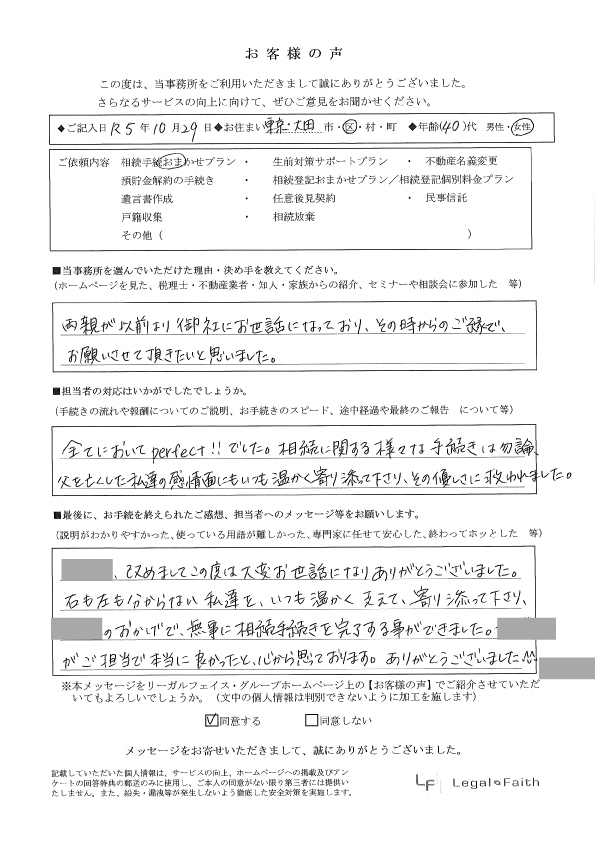 お客様の声
この度は、当事務所をご利用いただきまして誠にありがとうございました。
さらなるサービスの向上に向けて、ぜひご意見をお聞かせください。
◆ご記入日 R5年10月29日◆お住まい 東京・大田 市・区・村・町 ◆年齢(40)代 男性・女性
ご依頼内容 相続手続おまかせプラン ・ 生前対策サポートプラン ・ 不動産名義変更
預貯金解約の手続き ・ 相続登記おまかせプラン／相続登記個別料金プラン
遺言書作成 ・ 任意後見契約 ・ 民事信託
戸籍収集 ・ 相続放棄
その他（ ）
■当事務所を選んでいただけた理由・決め手を教えてください。
（ホームページを見た、税理士・不動産業者・知人・家族からの紹介、セミナーや相談会に参加した 等）
両親が以前より御社にお世話になっており、その時からのご縁で、
お願いさせて頂きたいと思いました。
■担当者の対応はいかがでしたでしょうか。
（手続きの流れや報酬についてのご説明、お手続きのスピード、途中経過や最終のご報告 について等）
全てにおいてperfect!!でした。相続に関する様々な手続きは勿論、
父を亡くした私達の感情面にもいつも温かく寄り添って下さり、その優しさに救われました。
■最後に、お手続を終えられたご感想、担当者へのメッセージ等をお願いします。
（説明がわかりやすかった、使っている用語が難しかった、専門家に任せて安心した、終わってホッとした 等）
、改めましてこの度は大変お世話になりありがとうございました。
右も左も分からない私達を、いつも温かく支えて、寄り添って下さり、
のおかげで、無事に相続手続きを完了する事ができました。
がご担当で本当に良かったと、心から思っております。ありがとうございました
※本メッセージをリーガルフェイス・グループホームページ上の【お客様の声】でご紹介させていただ
いてもよろしいでしょうか。（文中の個人情報は判別できないように加工を施します）
☑同意する □同意しない
メッセージをお寄せいただきまして、誠にありがとうございました。
記載していただいた個人情報は、サービスの向上、ホームページへの掲載及びアン
ケートの回答特典の郵送のみに使用し、ご本人の同意がない限り第三者には提供い
たしません。また、紛失・漏洩等が発生しないよう徹底した安全対策を実施します。
LF Legal Faith